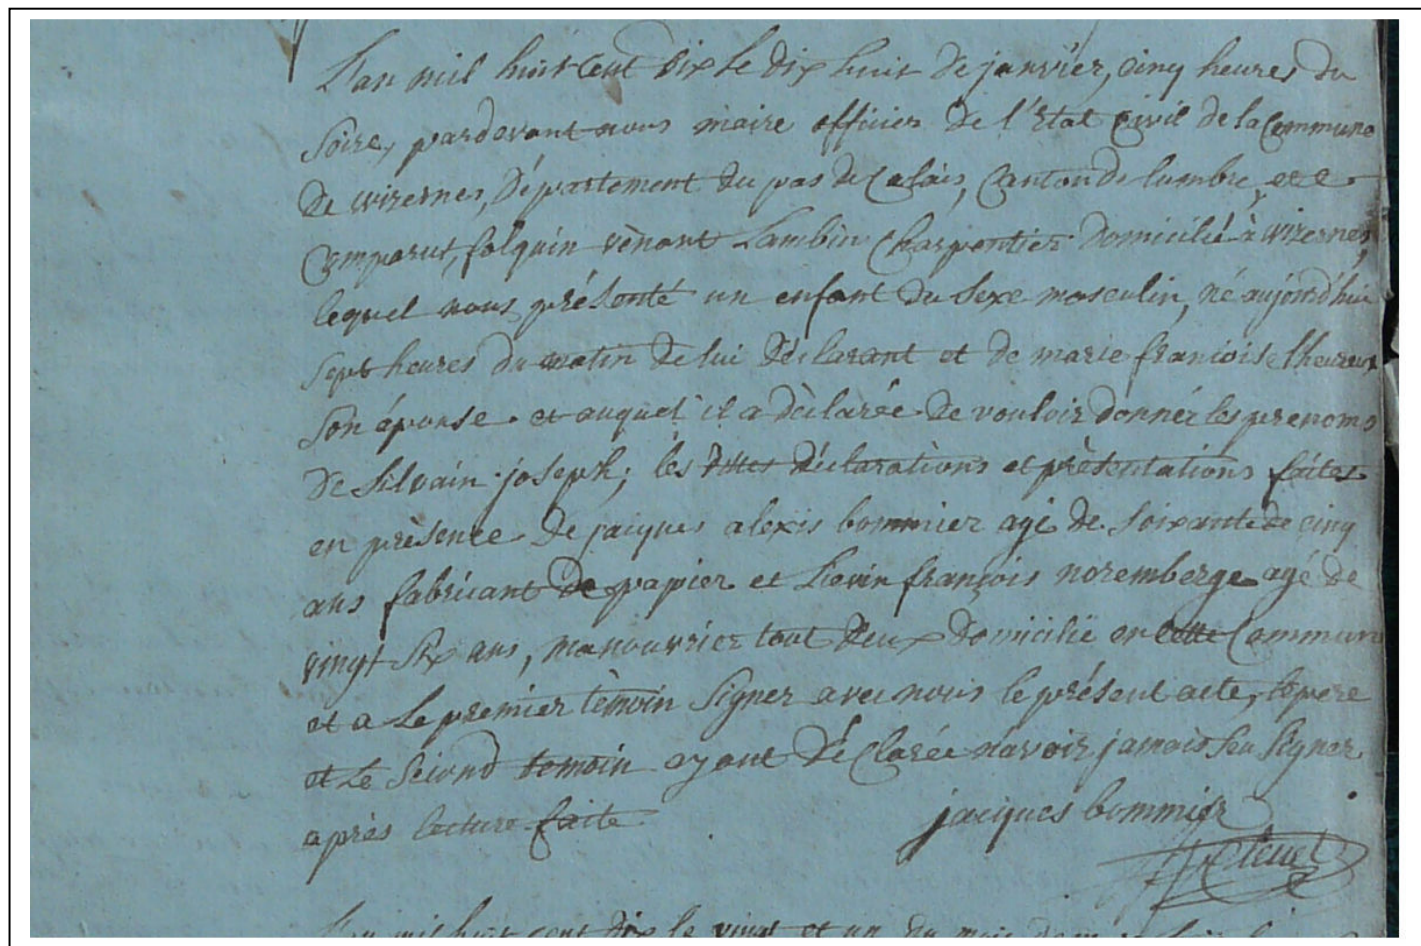 L'an mil huit cent dix le dix huit de janvier, cinq heures du
soire, pardevant nous maire officier de l'état civil de la commune
de wizernes, département du pas de Calais, Canton de lumbre, est
Comparut, folquin vènant Lambin charpentier domicilié à wizernes,
lequel nous présenté un enfant du sexe masculin, né aujourd'hui
sept heures du matin de lui déclarant et de marie francoise lheureux
son épouse et auquel il a dèclarée de vouloir donnér les prenoms
de Silvain joseph; les dittes déclarations et présentations faites
en présence de jaiques alexis bommier agé de soixante de cinq
ans fabricant de papier et Lievin françois noremberge agé de
vingt six ans, manouvrier tout deux domicilié en cette Commune
et a le premier tèmoin signer avec nous le présent acte, le pere
et le second temoin ayant déclarée n'avoir jamais seu signer
après lecture faite
jacques bommier
L'an mil huit cent dix le vingt et un du mois de